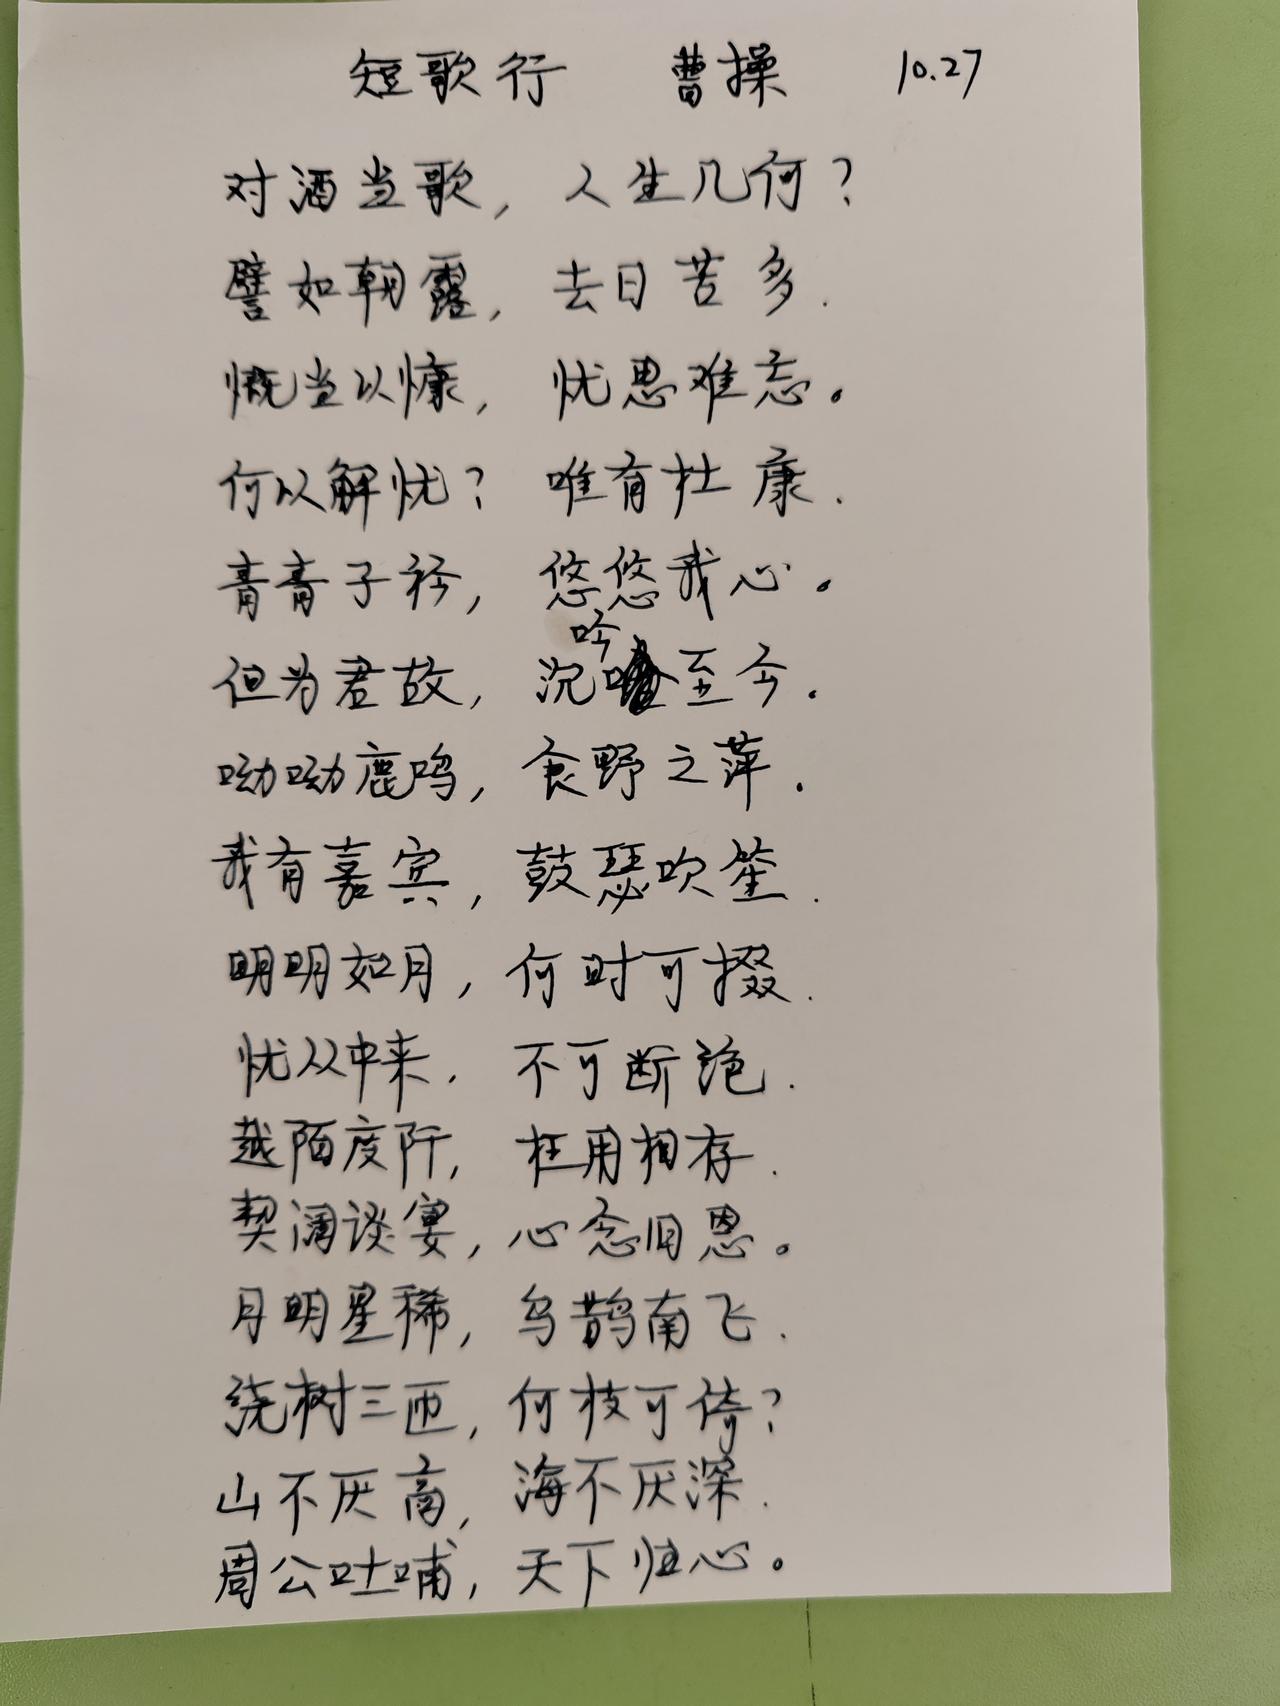 短歌行 曹操 10.27
对酒当歌，人生几何？
譬如朝露，去日苦多.
慨当以慷，忧思难忘。
何以解忧？唯有杜康.
青青子衿，悠悠我心。
但为君故，沉吟至今.
呦呦鹿鸣，食野之萍.
我有嘉宾，鼓瑟吹笙.
明明如月，何时可掇.
忧从中来，不可断绝.
越陌度阡，枉用相存.
契阔谈宴，心念旧恩。
月明星稀，乌鹊南飞.
绕树三匝，何枝可倚？
山不厌高，海不厌深.
周公吐哺，天下归心。